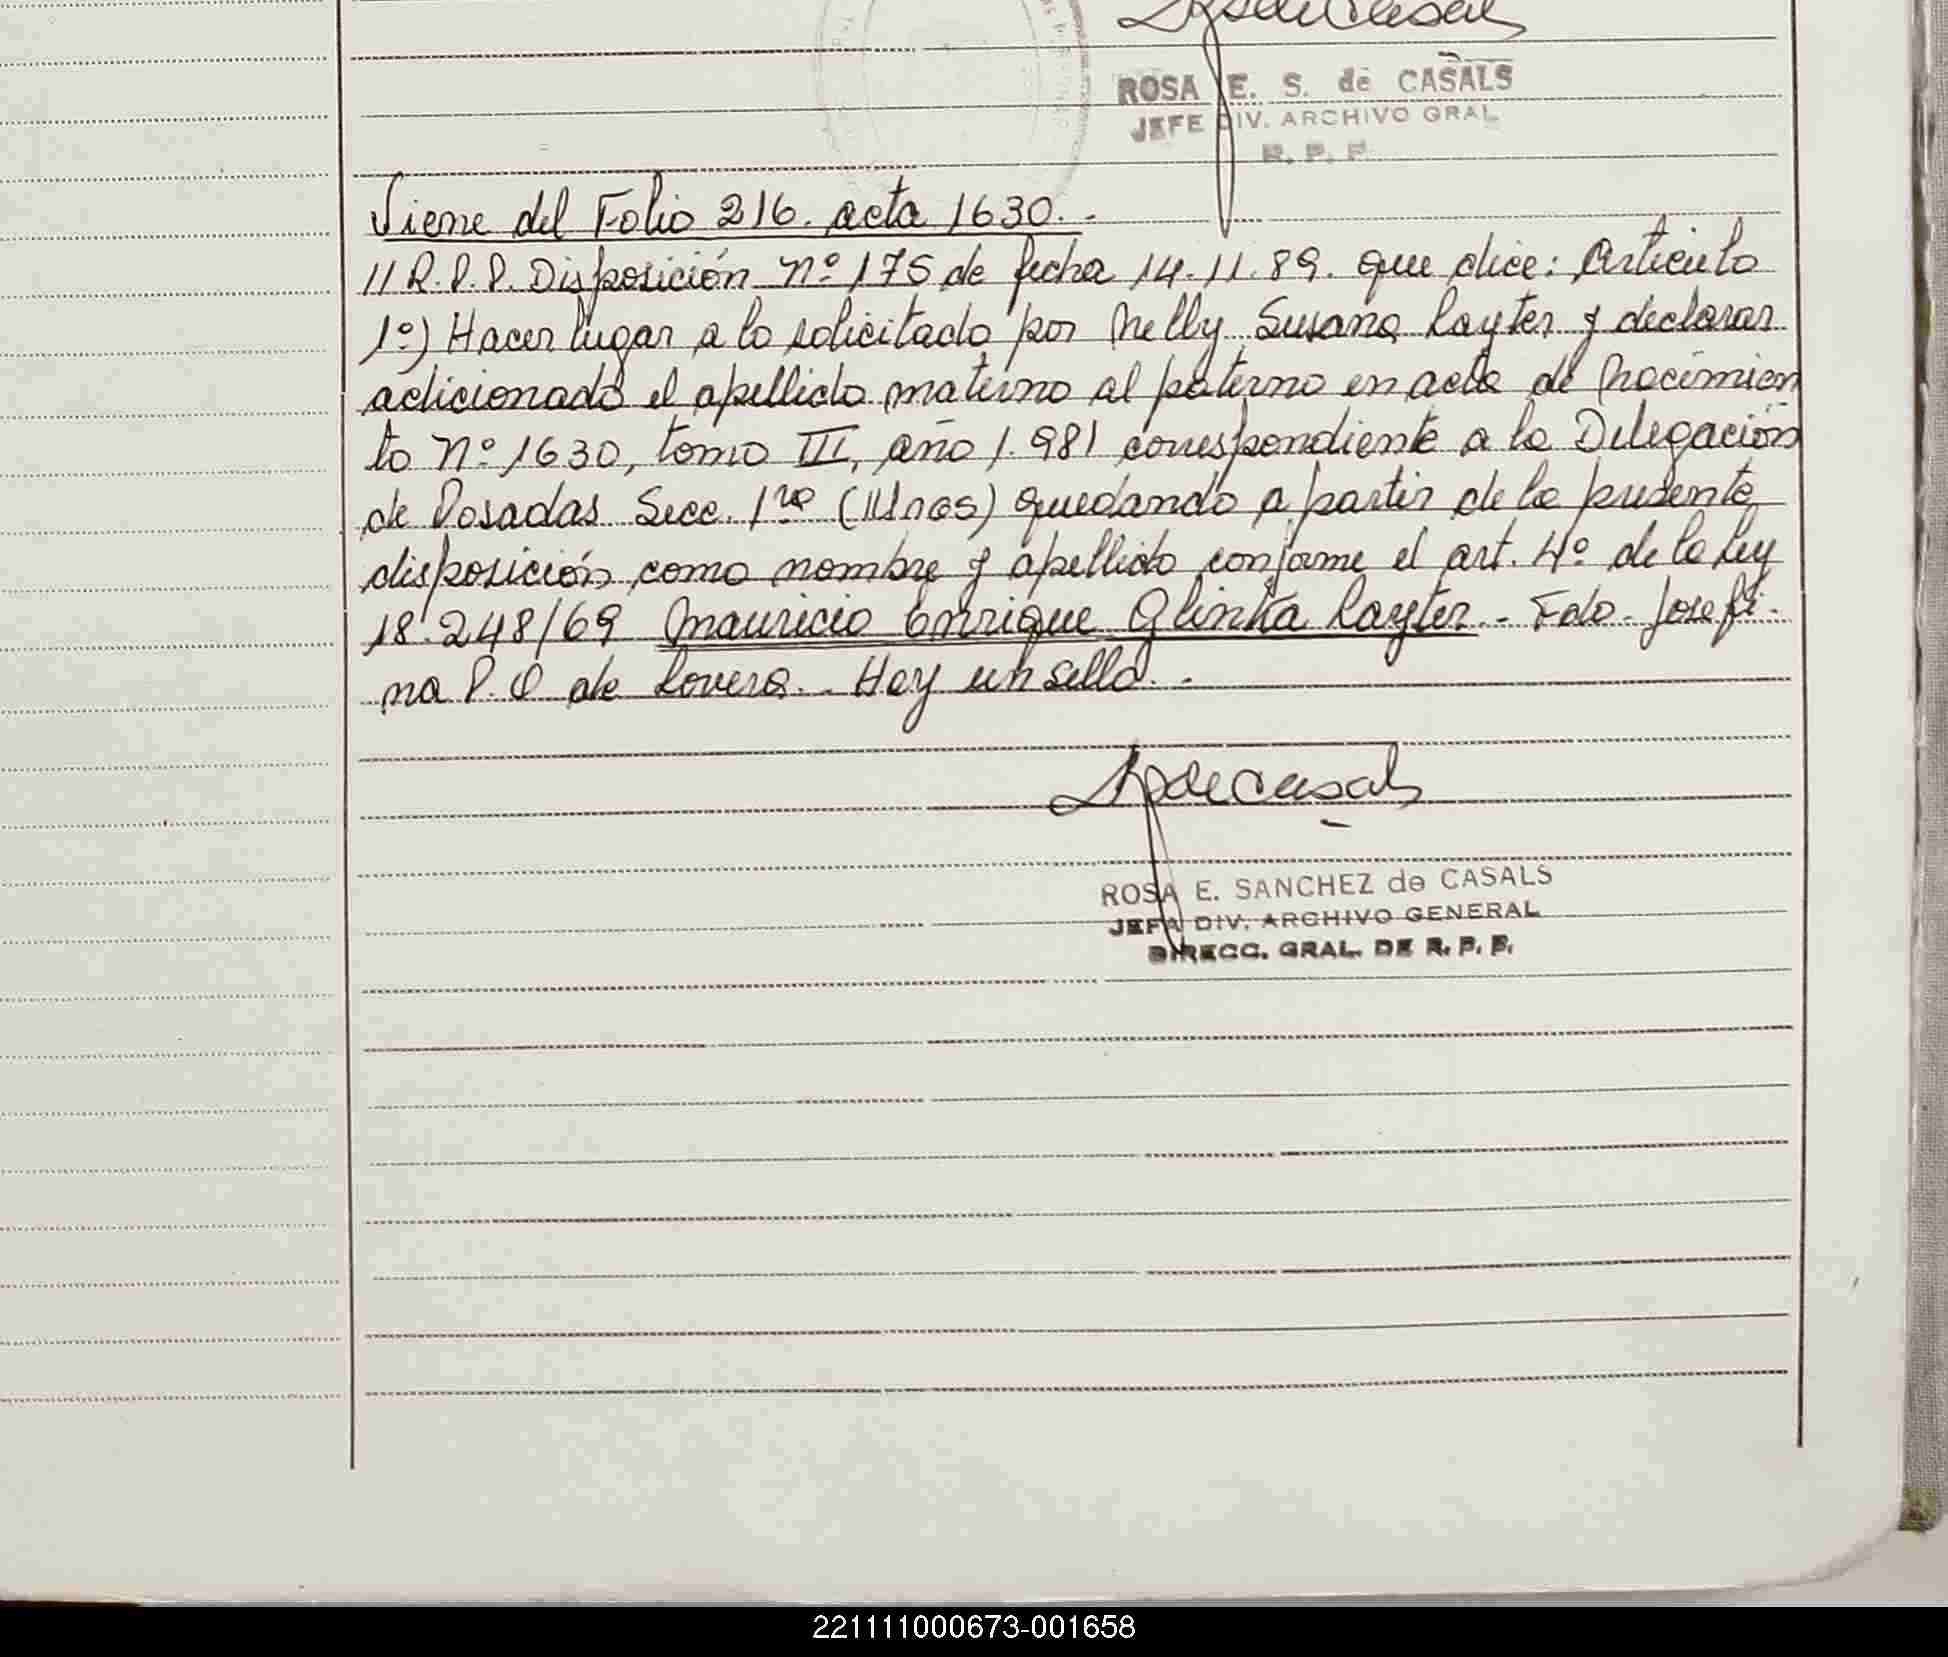 ROSA E. S. de CASALS
JEFE DIV. ARCHIVO GRAL
R. P. P.
Viene del Folio 216. acta 1630.-
//R.P.P. Disposición Nº 175 de fecha 14.11.89. que dice: Artículo
1º) Hacer lugar a lo solicitado por Nelly Susana Rayter y declarar
adicionado el apellido materno al paterno en acta de Nacimien
to Nº 1630, tomo III, año 1.981 correspondiente a la Delegación
de Posadas Secc. 1ra quedando a partir de la presente
disposición como nombre y apellido conforme el art. 4º de la Ley
18.248/69 Mauricio Enrique Glinka Rayter.- Fdo. Josefi-
na P. O de Lovera.- Hay un sello.-
ROSA E. SANCHEZ de CASALS
JEFA DIV. ARCHIVO GENERAL
DIRECC. GRAL. DE R. P. P.
221111000673-001658